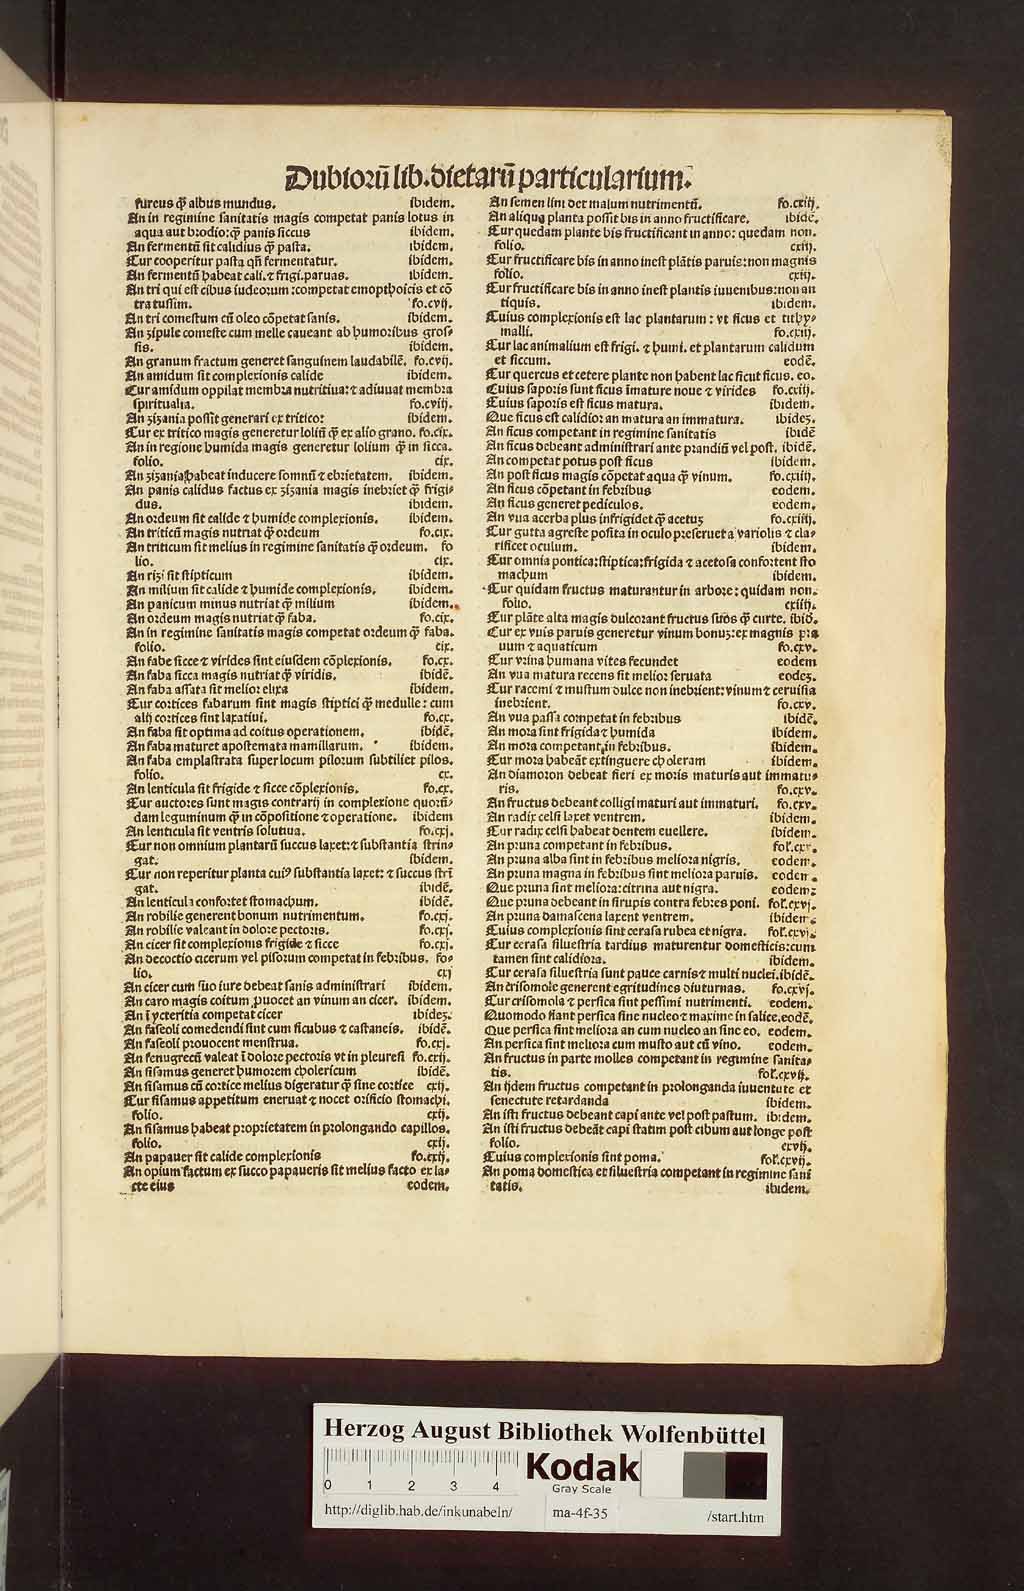 Dubioꝝ lib. dietarū particularium.
fureus ꝙ̄ albus mundus. ibidem.
An in regimine sanitatis magis competat panis lotus in
aqua aut brodio: ꝙ̄ panis siccus ibidem.
An fermentū sit calidius ꝙ̄ pasta. ibidem.
Cur cooperitur pasta qñ fermentatur. ibidem.
An fermentū habeat cali. ⁊ frigi. paruas. ibidem.
An tri qui est cibus iudeorum: competat emopthoicis et cō
tra tussim. fo.cvij.
An tri comestum cū oleo cōpetat sanis. ibidem.
An zipule comeste cum melle caueant ab humoribus gros-
sis. ibidem.
An granum fractum generet sanguinem laudabilē. fo.cvij.
An amidum sit complexionis calide ibidem.
Cur amidum oppilat membra nutritiua: ⁊ adiuuat membra
spiritualia. fo.cviij.
An zizania possit generari ex tritico: ibidem.
Cur ex tritico magis generetur loliū ꝙ̄ ex alio grano. fo.cix.
An in regione humida magis generetur lolium ꝙ̄ in sicca.
folio. cix.
An zizania habeat inducere somnū ⁊ ebrietatem. ibidem.
An panis calidus factus ex zizania magis inebriet ꝙ̄ frigi-
dus. ibidem.
An ordeum sit calide ⁊ humide complexionis. ibidem.
An triticū magis nutriat ꝙ̄ ordeum fo.cix.
An triticum sit melius in regimine sanitatis ꝙ̄ ordeum. fo
lio. cix.
An rizi sit stipticum ibidem.
An milium sit calide ⁊ humide complexionis. ibidem.
An panicum minus nutriat ꝙ̄ milium ibidem.
An ordeum magis nutriat ꝙ̄ faba. fo.cix.
An in regimine sanitatis magis competat ordeum ꝙ̄ faba.
folio. cix.
An fabe sicce ⁊ virides sint eiusdem cōplexionis. fo.cx.
An faba sicca magis nutriat ꝙ̄ viridis. ibidē.
An faba assata sit melior elixa ibidem.
Cur cortices fabarum sint magis stiptici ꝙ̄ medulle: cum
alij cortices sint laxatiui. fo.cx.
An faba sit optima ad coitus operationem. ibidē.
An faba maturet apostemata mamillarum. ibidem.
An faba emplastrata super locum pilorum subtiliet pilos.
folio. cx.
An lenticula sit frigide ⁊ sicce cōplexionis. fo.cx.
Cur auctores sunt magis contrarij in complexione quorū-
dam leguminum ꝙ̄ in cōpositione ⁊ operatione. ibidem
An lenticula sit ventris solutiua. fo.cxj.
Cur non omnium plantarū succus laxet: ⁊ substantia strin-
gat. ibidem.
Cur non reperitur planta cuiꝰ substantia laxet: ⁊ succus strī
gat. ibidē.
An lenticula confortet stomachum. ibidē.
An robilie generent bonum nutrimentum. fo.cxj.
An robilie valeant in dolore pectoris. fo.cxj.
An cicer sit complexionis frigide ⁊ sicce fo.cxj.
An decoctio cicerum vel pisorum competat in febribus. fo-
lio. cxj
An cicer cum suo iure debeat sanis administrari ibidem.
An caro magis coitum ꝓuocet an vinum an cicer. ibidem.
An ī ycteritia competat cicer ibidez.
An faseoli comedendi sint cum ficubus ⁊ castaneis. ibidē.
An faseoli prouocent menstrua. fo.cxj.
An fenugrecū valeat ī dolore pectoris vt in pleuresi fo.cxij.
An sisamus generet humorem cholericum ibidē.
An sisamus cū cortice melius digeratur ꝙ̄ sine cortice cxij.
Cur sisamus appetitum eneruat ⁊ nocet orificio stomachi.
folio. cxij.
An sisamus habeat proprietatem in prolongando capillos.
folio. cxij.
An papauer sit calide complexionis fo.cxij.
An opium factum ex succo papaueris sit melius facto ex la-
cte eius eodem.
An semen lini det malum nutrimentū. fo.cxiij.
An aliqua planta possit bis in anno fructificare. ibidē.
Cur quedam plante bis fructificant in anno: quedam non.
folio. cxiij.
Cur fructificare bis in anno inest plātis paruis: non magnis
folio. cxiij.
Cur fructificare bis in anno inest plantis iuuenibus: non an
tiquis. ibidem.
Cuius complexionis est lac plantarum: vt ficus et tithy-
malli. fo.cxiij.
Cur lac animalium est frigi. ⁊ humi. et plantarum calidum
et siccum. eodē.
Cur quercus et cetere plante non habent lac sicut ficus. eo.
Cuius saporis sunt ficus īmature noue ⁊ virides fo.cxiij.
Cuius saporis est ficus matura. ibidem.
Que ficus est calidior: an matura an immatura. ibidez.
An ficus competant in regimine sanitatis ibidē
An ficus debeant administrari ante prandiū vel post. ibidē.
An competat potus post ficus ibidem.
An post ficus magis cōpetat aqua ꝙ̄ vinum. fo.cxiiij.
An ficus cōpetant in febribus eodem.
An ficus generet pediculos. eodem.
An vua acerba plus infrigidet ꝙ̄ acetuz fo.cxiiij.
Cur gutta agreste posita in oculo preseruet a variolis ⁊ cla-
rificet oculum. ibidem.
Cur omnia pontica: stiptica: frigida ⁊ acetosa confortent sto
machum ibidem.
Cur quidam fructus maturantur in arbore: quidam non.
folio. cxiiij.
Cur plāte alta magis dulcorant fructus suos ꝙ̄ curte. ibid.
Cur ex vuis paruis generetur vinum bonuz: ex magnis pra
uum ⁊ aquaticum fo.cxv.
Cur vrina humana vites fecundet eodem
An vua matura recens sit melior seruata eodez.
Cur racemi ⁊ mustum dulce non inebrient: vinum ⁊ ceruisia
inebrient. fo.cxv.
An vua passa competat in febribus ibidē.
An mora sint frigida ⁊ humida ibidem.
An mora competant in febribus. ibidem.
Cur mora habeāt extinguere choleram ibidem.
An diamoron debeat fieri ex moris maturis aut immatu-
ris. fo.cxv.
An fructus debeant colligi maturi aut immaturi. fo.cxv.
An radix celsi laxet ventrem. ibidem.
Cur radix celsi habeat dentem euellere. ibidem.
An pruna competant in febribus. fol.cxv.
An pruna alba sint in febribus meliora nigris. eodem.
An pruna magna in febribus sint meliora paruis. eodem.
Que pruna sint meliora: citrina aut nigra. eodem:
Que pruna debeant in sirupis contra febres poni. fol.cxvj.
An pruna damascena laxent ventrem. ibidem.
Cuius complexionis sint cerasa rubea et nigra. fol.cxvj.
Cur cerasa siluestria tardius maturentur domesticis: cum
tamen sint calidiora. ibidem.
Cur cerasa siluestria sunt pauce carnis ⁊ multi nuclei. ibidē.
An crisomole generent egritudines diuturnas. fo.cxvj.
Cur crisomola ⁊ persica sint pessimi nutrimenti. eodem.
Quomodo fiant persica sine nucleo ⁊ maxime in salice. eodē.
Que persica sint meliora an cum nucleo an sine eo. eodem.
An persica sint meliora cum musto aut cū vino. eodem.
An fructus in parte molles competant in regimine sanita-
tis. fol.cxvij.
An ijdem fructus competant in prolonganda iuuentute et
senectute retardanda ibidem.
An isti fructus debeant capi ante vel post pastum. ibidem.
An isti fructus debeāt capi statim post cibum aut longe post
folio. cxvij.
Cuius complexionis sint poma. fol.cxvij.
An poma domestica et siluestria competant in regimine sani
tatis. ibidem.
Herzog August Bibliothek Wolfenbüttel
0 1 2 3 4
Kodak
Gray Scale
http://diglib.hab.de/inkunabeln/ ma-4f-35 /start.htm